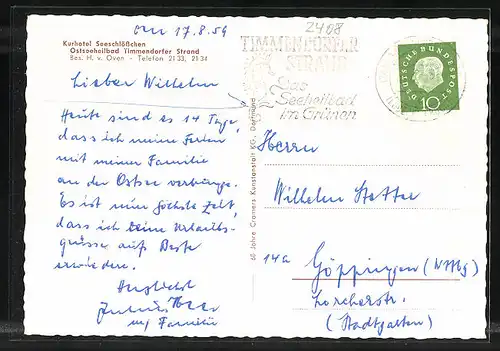 den 17.8.59
Kurhotel Seeschlößchen
Ostseeheilbad Timmendorfer Strand
Bes. H. v. Oven - Telefon 21 33, 21 34
Lieber Wilhelm
Heute sind es 14 Tage,
dass ich meine Ferien
mit meiner Familie
an der Ostsee verbringe.
Es ist nun höchste Zeit,
dass ich Deine Urlaubs-
grüsse aufs Beste
erwidere.
Herzlichst
u/ Familie
60 Jahre Cramers Kunstanstalt KG., Dortmund
2408
TIMMENDORFER
STRAND
Das
Seeheilbad
im Grünen
DEUTSCHE BUNDESPOST
10
Herrn
Wilhelm Stotter
14a
Göppingen (Wttbg)
Lorcherstr.
(Stadtgarten)